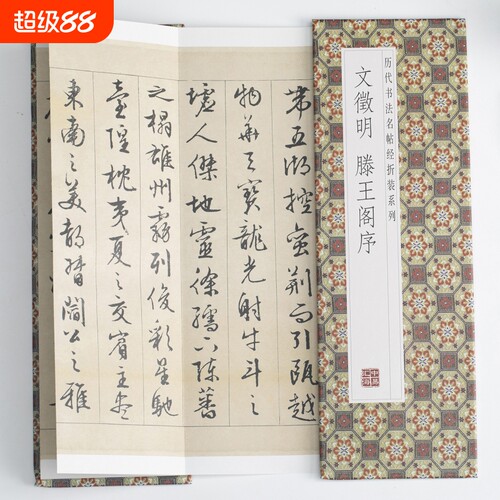 超级88
历代书法名帖经折装系列
文徵明 滕王阁序
帶五湖控蛮荆而引甌越
物華天寶龍光射牛斗之
墟人傑地靈徐孺下陳蕃
之榻雄州霧列俊彩星馳
臺隍枕夷夏之交賓主盡
東南之美都督閻公之雅